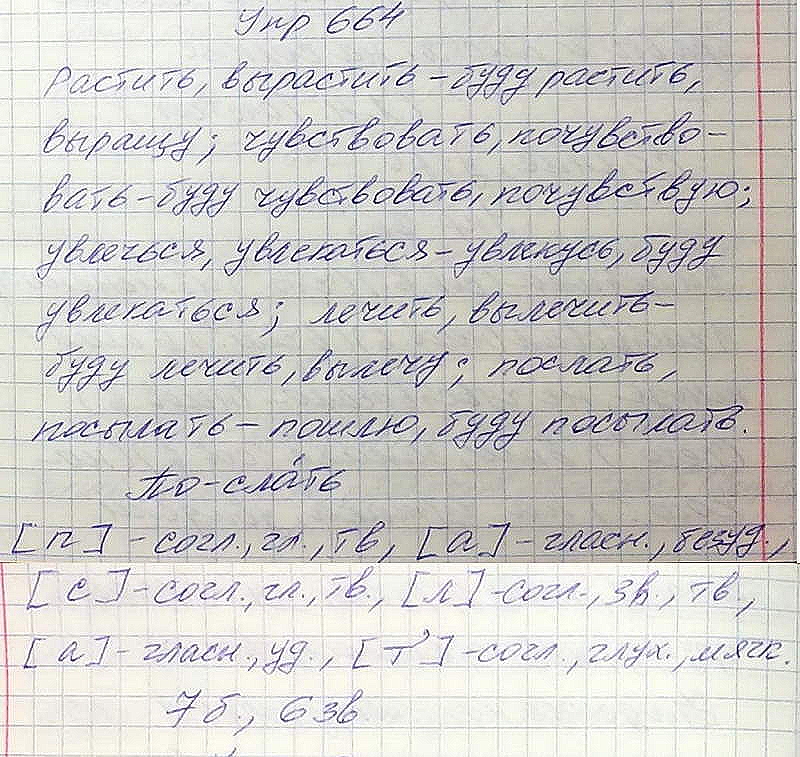 Упр 664
Растить, вырастить – буду растить,
выращу; чувствовать, почувство-
вать – буду чувствовать, почувствую;
увлечься, увлекаться – увлекусь, буду
увлекаться; лечить, вылечить –
буду лечить, вылечу; послать,
посылать – пошлю, буду посылать.
По-сла́ть
[п] - согл., гл., тв, [а] - гласн., безуд.,
[с] - согл., гл., тв., [л] - согл., зв., тв.,
[а] - гласн., уд., [т'] - согл., глух., мягк.
7 б., 6 зв.